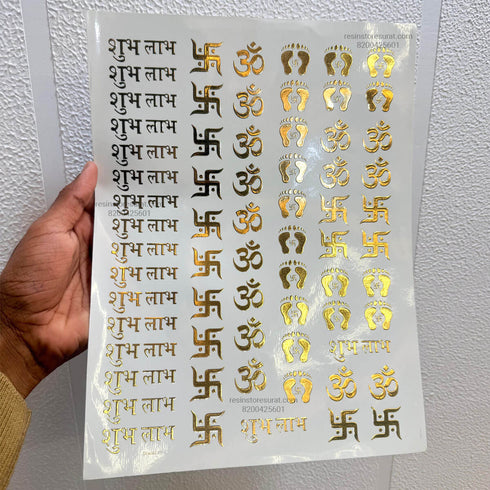 resinstoresurat.com
8200425601
शुभ लाभ ॐ
शुभ लाभ
शुभ लाभ ॐ
शुभ लाभ ॐ ॐ ॐ
शुभ लाभ
शुभ लाभ ॐ ॐ ॐ
शुभ लाभ
resinstoresurat.com
8200425601
शुभ लाभ ॐ
शुभ लाभ ॐ
शुभ लाभ
शुभ लाभ ॐ
शुभ लाभ
शुभ लाभ ॐ शुभ लाभ
शुभ लाभ ॐ ॐ ॐ
शुभ लाभ
resinstoresurat.com
8200425601
शुभ लाभ शुभ लाभ